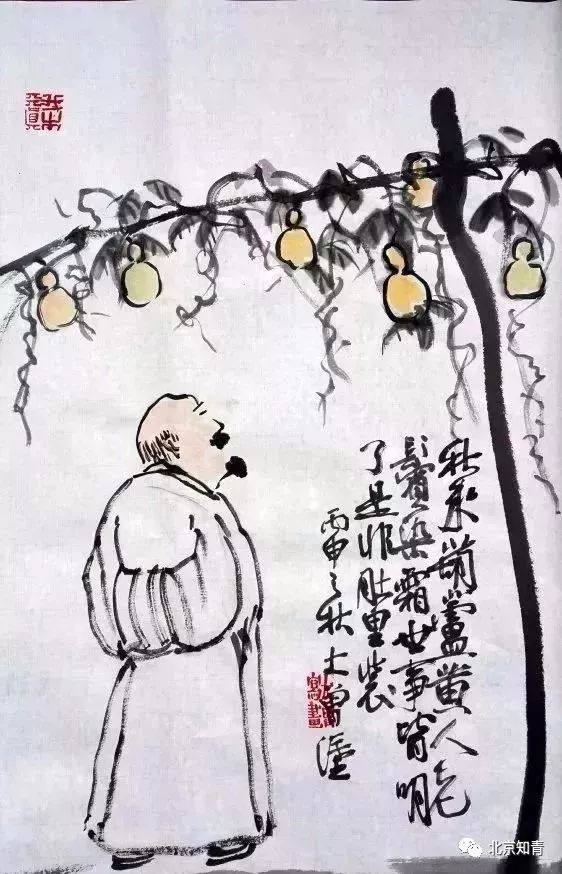 秋来葫蘆黄人老
鬢染霜世事皆明
了是非肚里装
丙申之秋
寫畫
北京知青